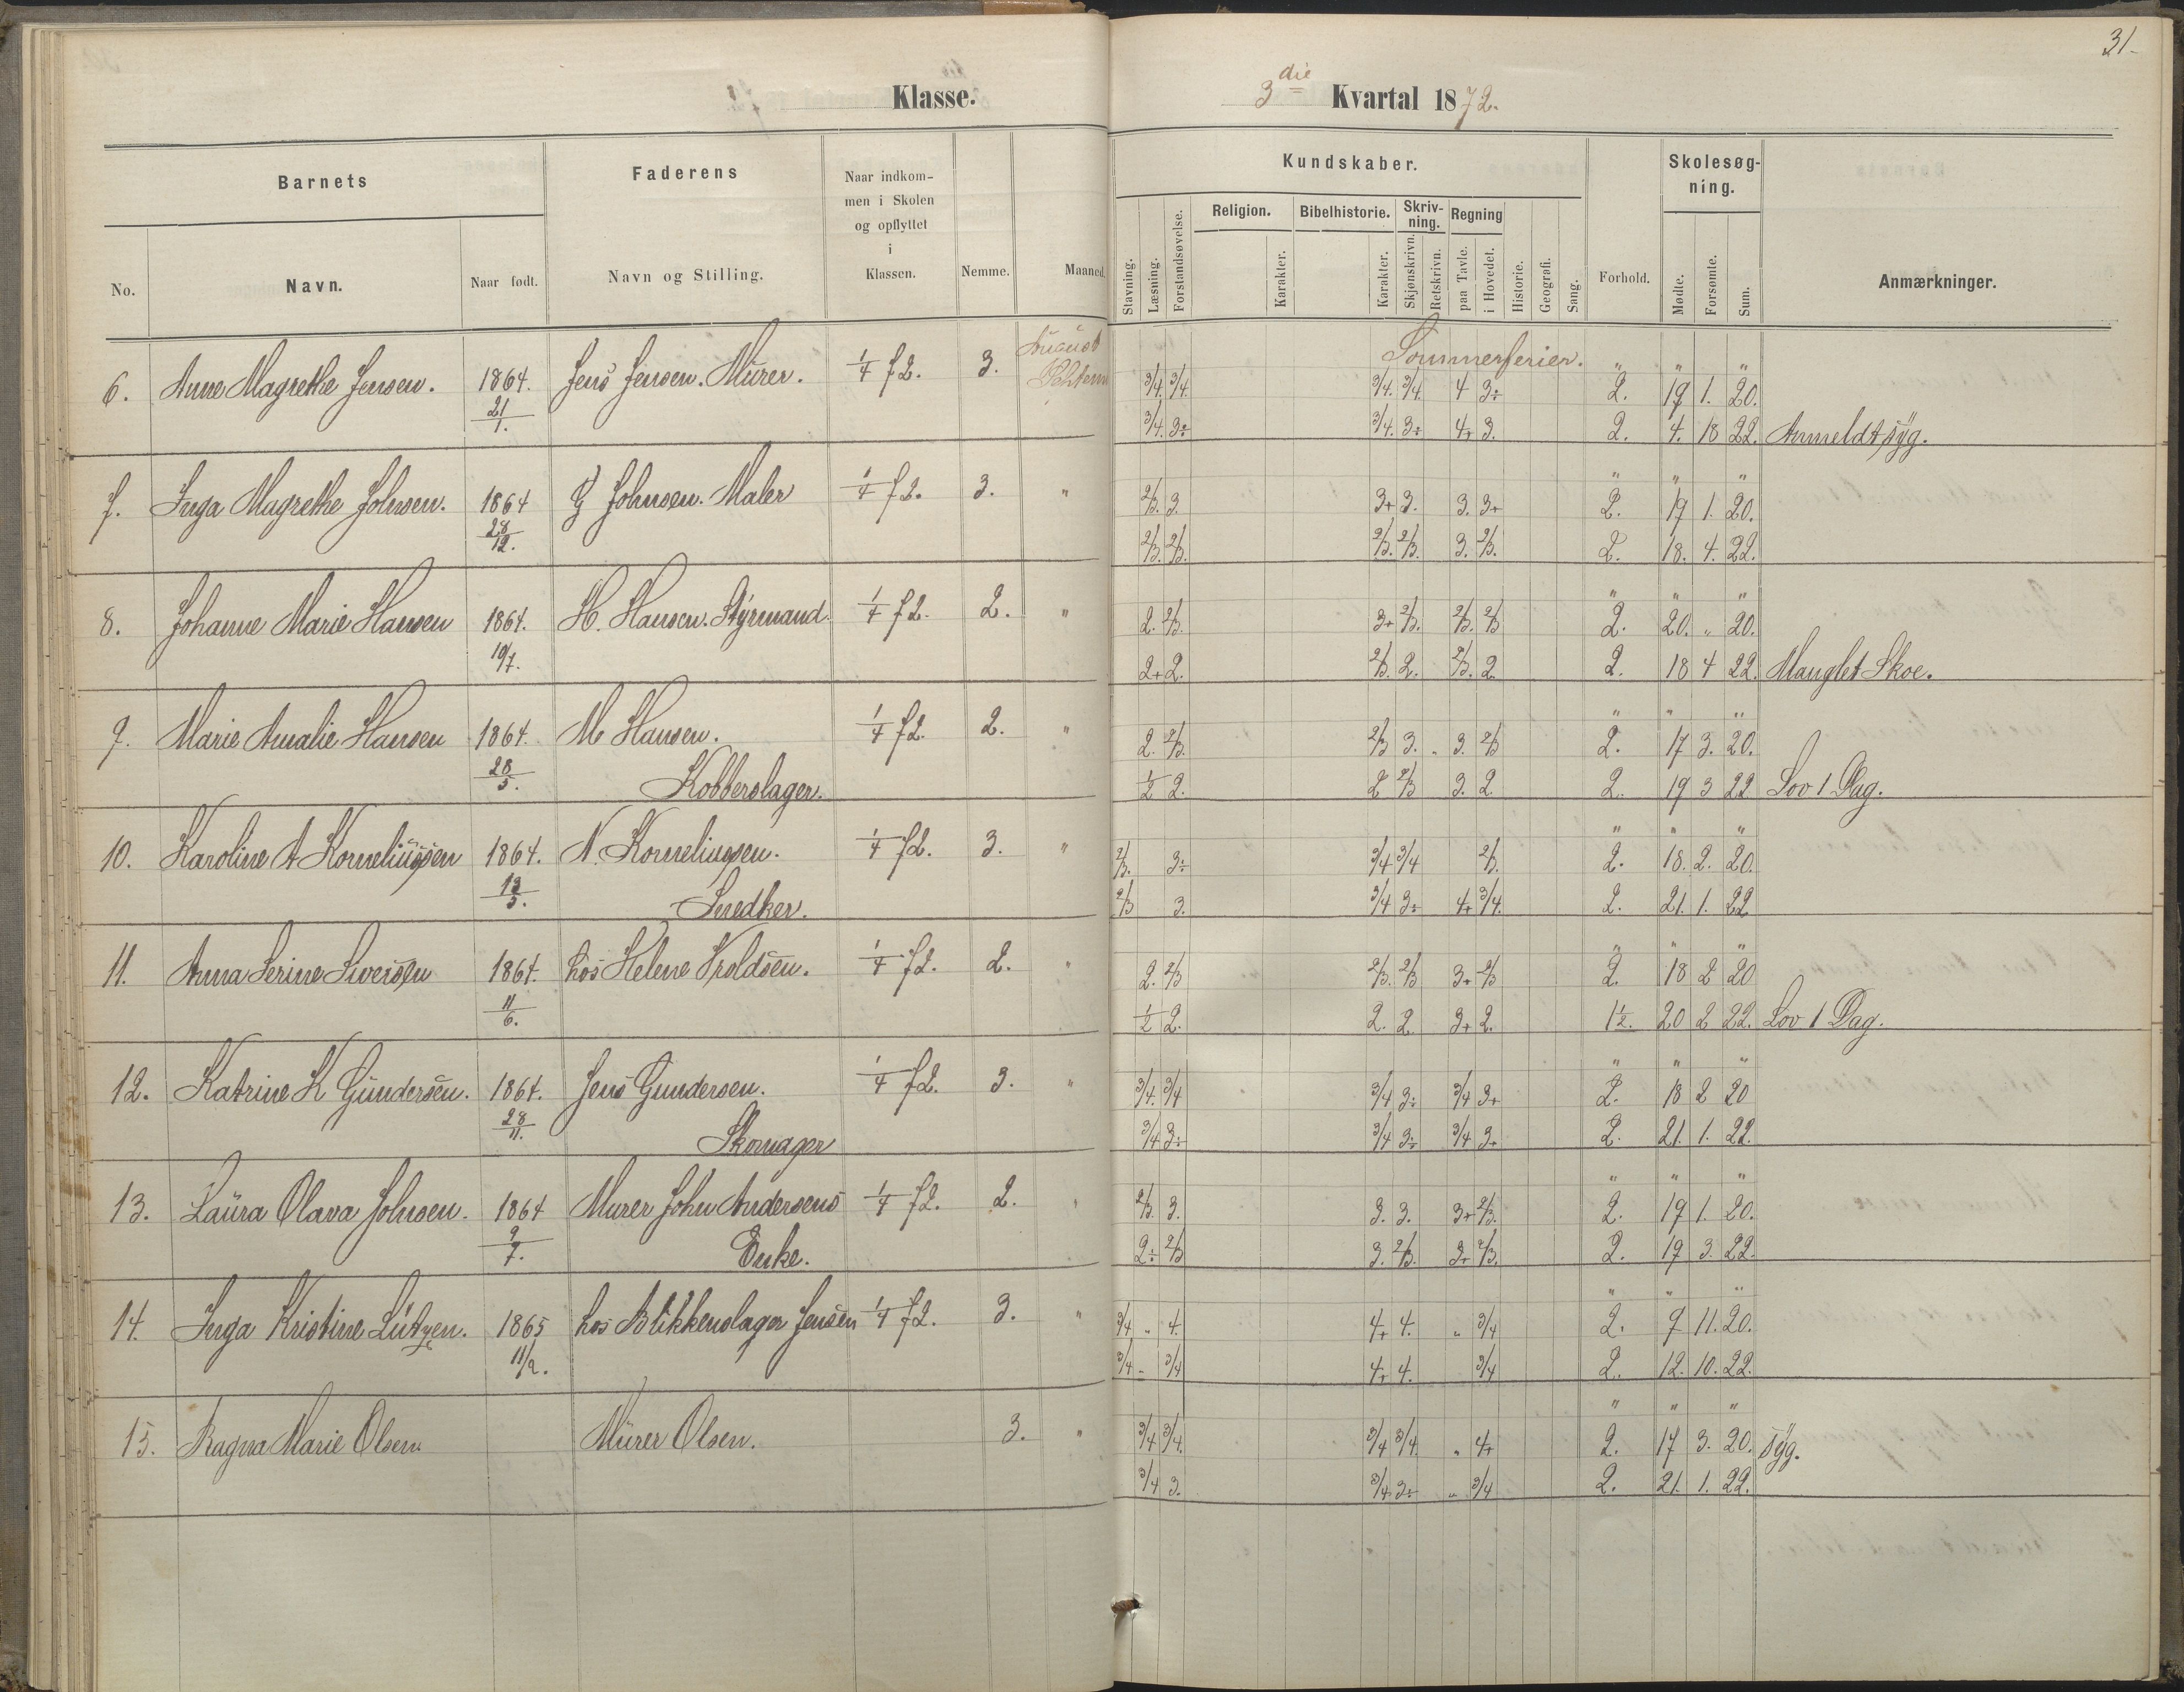 31.
Klasse.
3die Kvartal 1872.
Barnets
Faderens
Naar indkommen i Skolen og opflyttet i Klassen.
Nemme.
Maaned.
No.
Navn.
Naar født.
Navn og Stilling.
Kundskaber.
Stavning.
Læsning.
Forstandsøvelse.
Religion.
Karakter.
Bibelhistorie.
Karakter.
Skrivning.
Skjønskrivn.
Retskrivn.
Regning
paa Tavle.
i Hovedet.
Historie.
Geografi.
Sang.
Forhold.
Skolesøgning.
Mødte.
Forsømte.
Sum.
Anmærkninger.
August Sommerferier. " " "
6. Anne Magrethe Jensen. 1864. Jens Jensen. Murer. 1/4 72. 3. 3/4. 3/4. 3/4. 3/4. 4 3÷ 2. 19 1. 20.
21/1. 3/4. 3÷ 3/4. 3÷ 4+ 3. 2. 4. 18 22. Anmeldt syg.
" " "
7. Inga Magrethe Johnsen. 1864 G Johnsen. Maler 1/4 72. 3. " 2/3. 3. 3+ 3. 3. 3+ 2. 19 1. 20.
28/12. 2/3. 2/3. 2/3. 2/3. 3. 2/3. 2. 18. 4. 22.
" " "
8. Johanne Marie Hansen 1864. H. Hansen. Styrmand. 1/4 72. 2. " 2. 2/3. 3+ 2/3. 2/3. 2/3 2. 20. " 20.
19/7. 2+ 2. 2/3. 2. 2/3. 2. 2. 18 4 22. Manglet Skoe.
" " "
9. Marie Amalie Hansen 1864. M Hansen. 1/4 72. 2. " 2. 2/3. 2/3 3. " 3. 2/3 2. 17 3. 20.
28/5. Kobberslager. 1/2 2. 2 2/3 3. 2. 2. 19 3 22 Lov 1 Dag.
" " "
10. Karoline A Korneliussen 1864. N. Korneliussen. 1/4 72. 3. " 2/3. 3÷ 3/4 3/4 2/3. 2. 18. 2. 20.
13/5. Snedker. 2/3 3. 3/4 3÷ 4+ 3/4. 2. 21. 1. 22
" " "
11. Anna Serine Siversen 1864. hos Helene Troldsen. 1/4 72. 2. " 2. 2/3 2/3. 2/3 3+ 2/3 2. 18 2 20
11/6. 1/2 2. 2. 2. 3+ 2. 1 1/2. 20 2 22. Lov 1 Dag.
" " "
12. Katrine K Gundersen. 1864. Jens Gundersen. 1/4 72. 3. " 3/4. 3/4 3/4 3÷ 3/4 3+ 2. 18 2 20
28/11. Skomager 3/4 3÷ 3/4 3÷ 3/4 3+ 2. 21. 1. 22.
" " "
13. Laura Olava Johnsen. 1864 Murer John Andersens 1/4 72. 2. " 2/3. 3. 3. 3. 3+ 2/3. 2. 19 1. 20.
9/7. Enke. 2÷ 2/3 3. 2/3. 3+ 2/3. 2. 19 3. 22.
" " "
14. Inga Kristine Lützen. 1865 hos Blikkenslager Jensen 1/4 72. 3. " 3/4 " 4. 4+ 4. " 3/4 2. 9 11. 20.
11/2. 3/4 - 3/4 4+ 4. 3/4 2. 12. 10. 22.
" " "
15. Ragna Marie Olsen. Murer Olsen. 3. " 3/4 3/4. 3/4 3/4. " 4+ 2. 17 3. 20. syg.
3/4 3. 3/4. 3÷ " 3/4 2. 21. 1. 22.